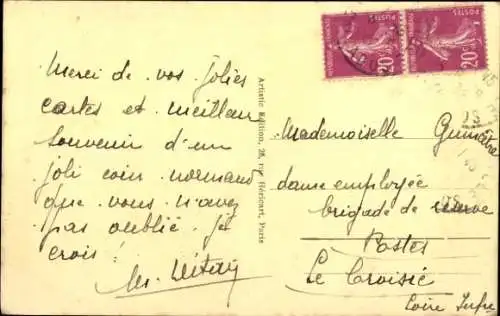 Merci de vos jolies
cartes et meilleur
souvenir d'un
joli coin normand
que vous n'avez
pas oublié je
crois !
Artistic Edition, 28, rue Héricart, Paris
POSTES
20c
POSTES
20c
Mademoiselle
dame employée
brigade de réserve
Postes
Le Croisic
Loire Infre